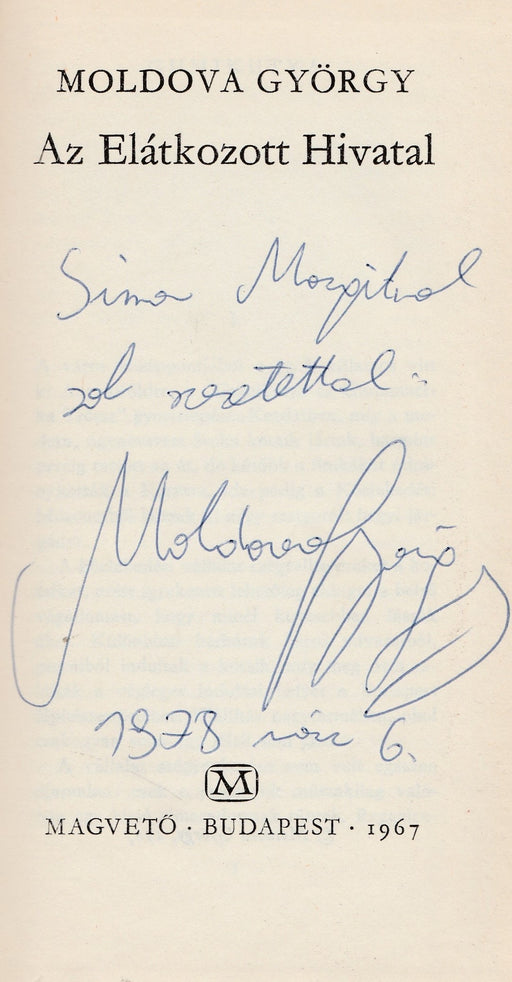 MOLDOVA GYÖRGY
Az Elátkozott Hivatal
Simon Margitnak
sok szeretettel:
Moldova György
1978 nov 6.
M
MAGVETŐ · BUDAPEST · 1967